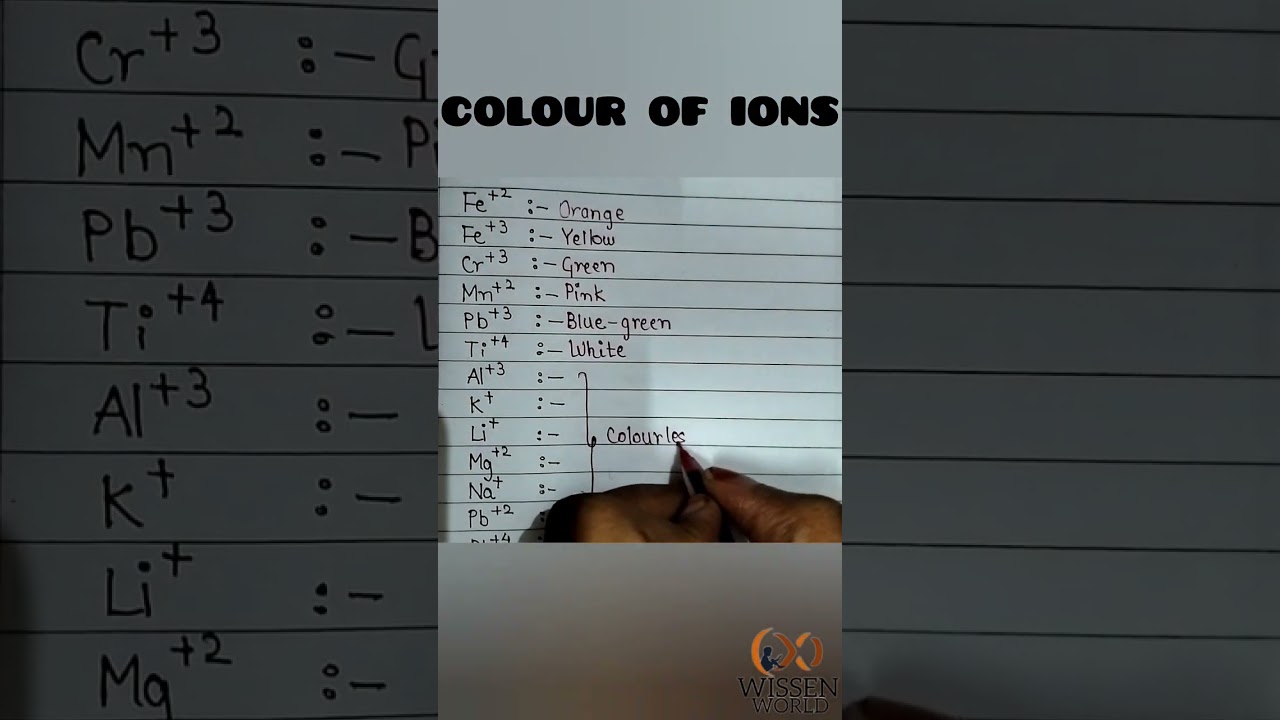 COLOUR OF IONS
Fe+2 :- Orange
Fe+3 :- Yellow
Cr+3 :- Green
Mn+2 :- Pink
Pb+3 :- Blue-green
Ti+4 :- White
Al+3 :-
K+ :-
Li+ :- Colourles
Mg+2 :-
Na+ :-
Pb+2 :
Cr+3 :- G
Mn+2 :- Pi
Pb+3 :- B
Ti+4 :-
Al+3 :-
K+ :-
Li+ :-
Mg+2 :-
WISSEN
WORLD